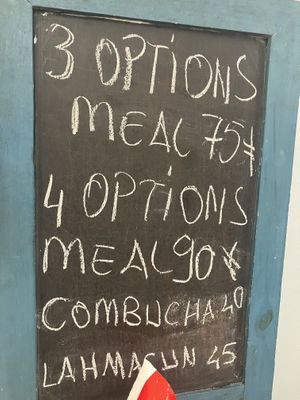 3 OPTIONS
MEAL 75₺
4 OPTIONS
MEAL 90₺
COMBUCHA 40
LAHMACUN 45